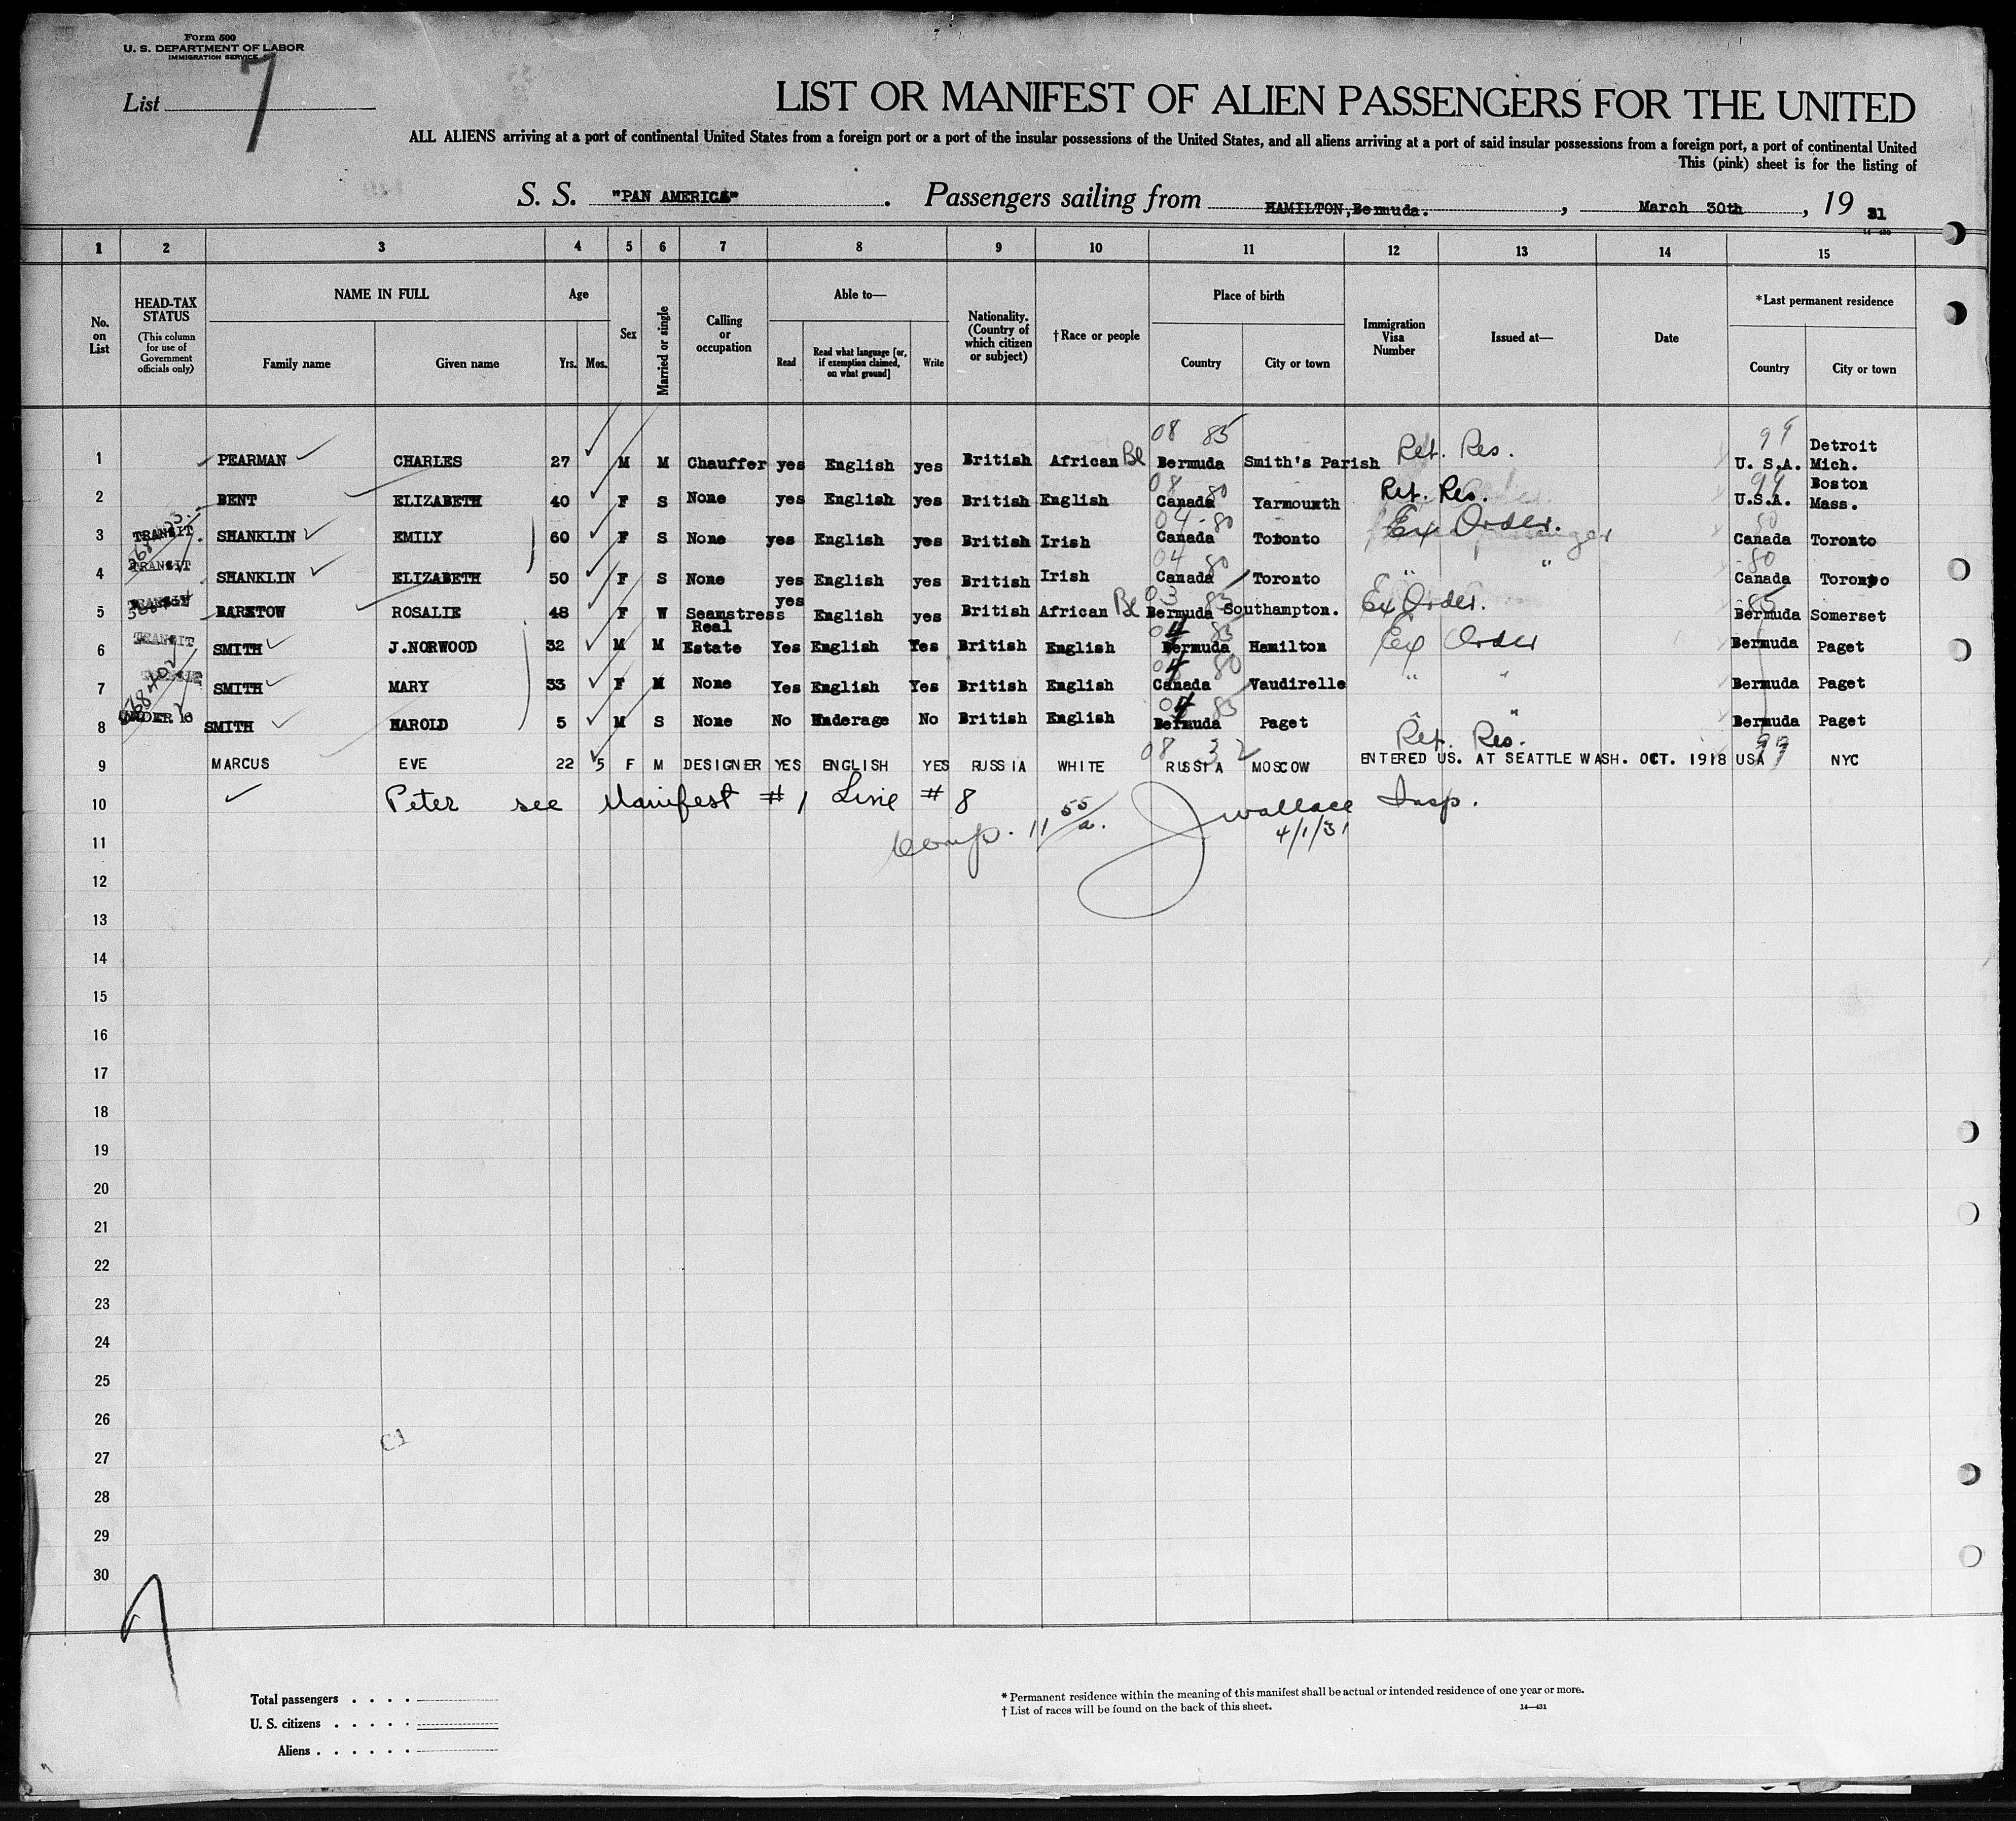 Form 500
U. S. DEPARTMENT OF LABOR
IMMIGRATION SERVICE
List 7
LIST OR MANIFEST OF ALIEN PASSENGERS FOR THE UNITED
ALL ALIENS arriving at a port of continental United States from a foreign port or a port of the insular possessions of the United States, and all aliens arriving at a port of said insular possessions from a foreign port, a port of continental United
This (pink) sheet is for the listing of
S. S. "PAN AMERICA". Passengers sailing from HAMILTON, Bermuda., March 30th, 19 31
14-430
1 2 3 4 5 6 7 8 9 10 11 12 13 14 15
No. on List
HEAD-TAX STATUS
(This column for use of Government officials only)
NAME IN FULL
Family name
Given name
Age
Yrs. Mos.
Sex
Married or single
Calling or occupation
Able to—
Read
Read what language [or, if exemption claimed, on what ground]
Write
Nationality. (Country of which citizen or subject)
†Race or people
Place of birth
Country
City or town
Immigration Visa Number
Issued at—
Date
*Last permanent residence
Country
City or town
08 85 99
1 PEARMAN CHARLES 27 M M Chauffer yes English yes British African Bl Bermuda Smith's Parish Ret. Res. U. S.A. Detroit Mich.
08 80 99
2 BENT ELIZABETH 40 F S None yes English yes British English Canada Yarmounth Ret. Res. U.S.A. Boston Mass.
04 80 80
3 TRANSIT SHANKLIN EMILY 60 F S None yes English yes British Irish Canada Toronto Ex Order. Canada Toronto
04 80 80
4 TRANSIT SHANKLIN ELIZABETH 50 F S None yes English yes British Irish Canada Toronto " " Canada Toronto
03 85 85
5 TRANSIT BARSTOW ROSALIE 48 F W Seamstress yes English yes British African Bl Bermuda Southampton. Ex Order. Bermuda Somerset
04 85
6 TRANSIT SMITH J.NORWOOD 32 M M Real Estate Yes English Yes British English Bermuda Hamilton Ex Order Bermuda Paget
04 80
7 TRANSIT SMITH MARY 33 F M None Yes English Yes British English Canada Vaudirelle " " Bermuda Paget
04 85
8 UNDER 16 SMITH HAROLD 5 M S None No Underage No British English Bermuda Paget " " Bermuda Paget
08 32 Ret. Res. 99
9 MARCUS EVE 22 5 F M DESIGNER YES ENGLISH YES RUSSIA WHITE RUSSIA MOSCOW ENTERED US. AT SEATTLE WASH. OCT. 1918 USA NYC
10 Peter see Manifest # 1 Line # 8
Comp. 11 55/a. J Wallace Insp.
4/1/31
11
12
13
14
15
16
17
18
19
20
21
22
23
24
25
26
27
28
29
30
7
Total passengers . . . .
U. S. citizens . . . . .
Aliens . . . . . .
* Permanent residence within the meaning of this manifest shall be actual or intended residence of one year or more.
† List of races will be found on the back of this sheet. 14—431